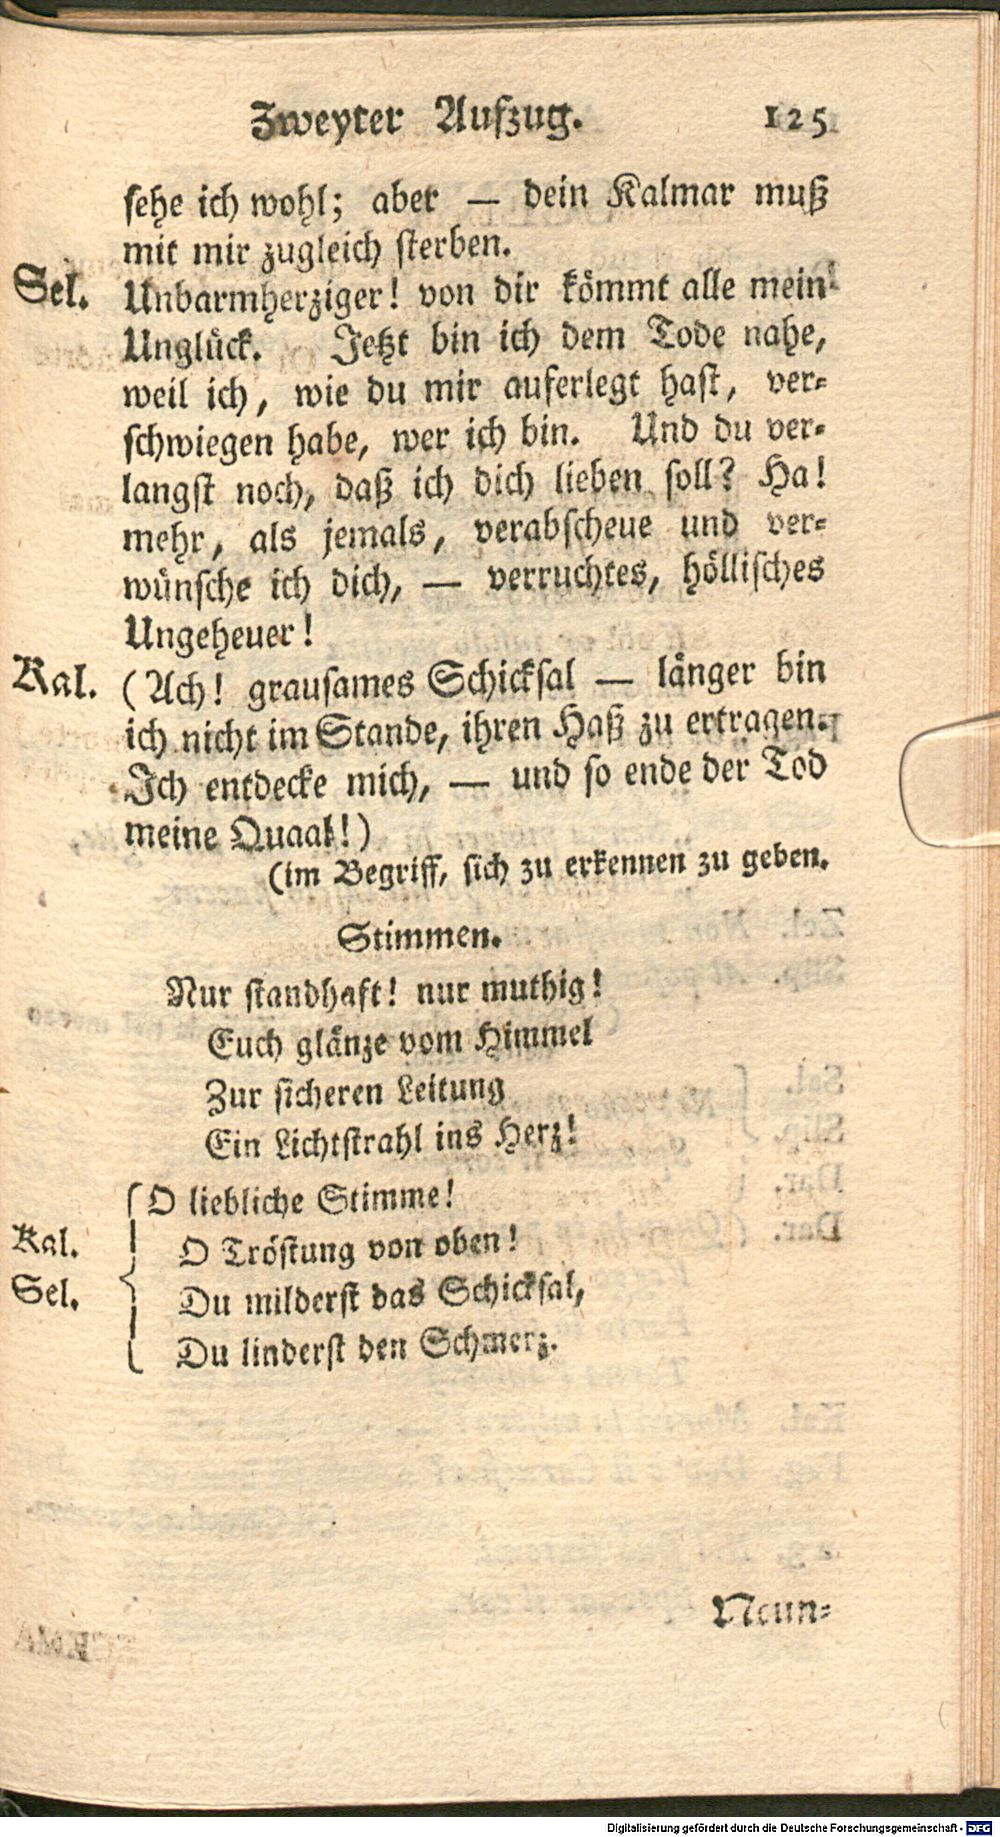 Zweyter Aufzug. 125
sehe ich wohl; aber — dein Kalmar muß
mit mir zugleich sterben.
Sel. Unbarmherziger! von dir kömmt alle mein
Unglück. Jetzt bin ich dem Tode nahe,
weil ich, wie du mir auferlegt hast, ver-
schwiegen habe, wer ich bin. Und du ver-
langst noch, daß ich dich lieben soll? Ha!
mehr, als jemals, verabscheue und ver-
wünsche ich dich, — verruchtes, höllisches
Ungeheuer!
Kal. (Ach! grausames Schicksal — länger bin
ich nicht im Stande, ihren Haß zu ertragen.
Ich entdecke mich, — und so ende der Tod
meine Quaal!)
(im Begriff, sich zu erkennen zu geben.
Stimmen.
Nur standhaft! nur muthig!
Euch glänze vom Himmel
Zur sicheren Leitung
Ein Lichtstrahl ins Herz!
O liebliche Stimme!
Kal. O Tröstung von oben!
Sel. Du milderst das Schicksal,
Du linderst den Schmerz.
Neun-
Digitalisierung gefördert durch die Deutsche Forschungsgemeinschaft - DFG